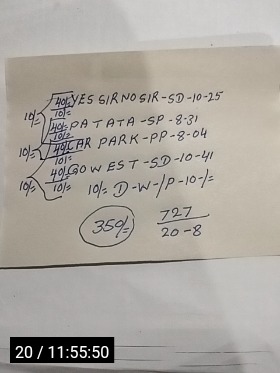 40/- YES SIR NO SIR - SD - 10-25
10/-
10/-
40/- PATATA - SP - 8-31
10/-
10/-
40/- CAR PARK - PP - 8-04
10/-
40/- GO WEST - SD - 10-41
10/-
10/-
10/- D-W-/P-10-/=
350/-
727
20-8
20 / 11:55:50